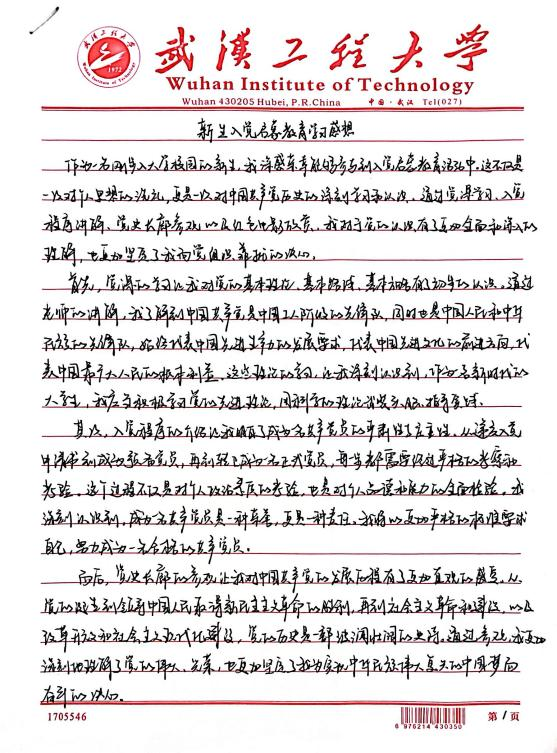 武汉工程大学
1972
Wuhan Institute of Technology
Wuhan 430205 Hubei, P.R.China 中国·武汉 Tel(027)
新生入党启蒙教育学习感想
作为一名刚步入大学校园的新生，我深感荣幸能够参与到入党启蒙教育活动中。这不仅是
一次对个人思想的洗礼，更是一次对中国共产党历史的深刻学习和认识。通过党课学习、入党
程序讲解、党史长廊参观以及红色电影欣赏，我对于党的认识有了更加全面和深入的
理解，也更加坚定了我向党组织靠拢的决心。
首先，党课的学习让我对党的基本理论、基本路线、基本知识有了初步的认识。通过
老师的讲解，我了解到中国共产党是中国工人阶级的先锋队，同时也是中国人民和中华
民族的先锋队，始终代表中国先进生产力的发展要求，代表中国先进文化的前进方向，代
表中国最广大人民的根本利益。这些理论的学习，让我深刻认识到，作为名新时代的
大学生，我应当积极学习党的先进理论，用科学的理论武装头脑、指导实践。
其次，入党程序的介绍让我明白了成为名共产党员的严肃性与庄重性。从递交入党
申请书到成为预备党员，再到转正成为名正式党员，每步都需要经过严格的考察和
考验。这个过程不仅是对个人政治素质的考验，也是对个人品德和能力的全面检验。我
深刻认识到，成为名共产党员是一种荣誉，更是一种责任。我将以更加严格的标准要求
自己，努力成为一名合格的共产党员。
而后，党史长廊的参观让我对中国共产党的发展历程有了更加直观的感受。从
党的诞生到领导中国人民取得新民主主义革命的胜利，再到社会主义革命和建设，以及
改革开放和社会主义现代化建设，党的历史是部波澜壮阔的史诗。通过参观，我更加
深刻地理解了党的伟大、光荣，也更加坚定了我为实现中华民族伟大复兴的中国梦而
奋斗的决心。
1705546
6 976214 430350
第1页